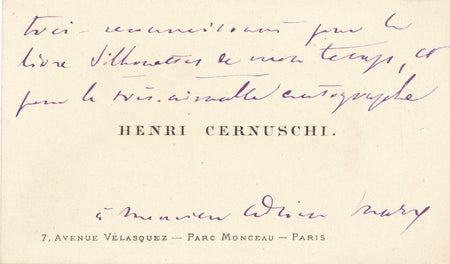 très-reconnaissant pour le
livre Silhouettes de mon temps, et
pour le très-aimable autographe
HENRI CERNUSCHI.
à Monsieur Adrien Marx
7, AVENUE VÉLASQUEZ — PARC MONCEAU — PARIS